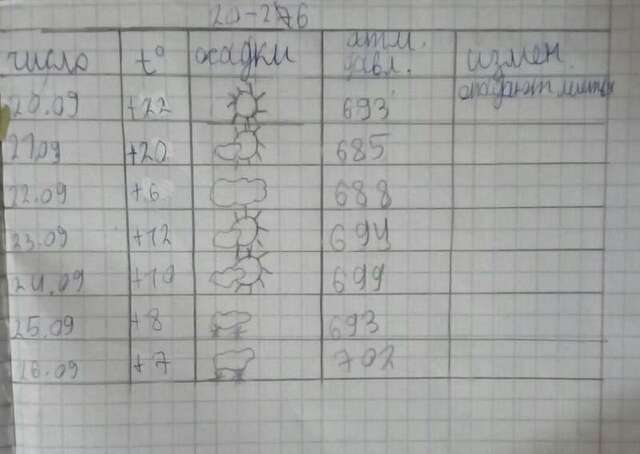 20-26
число t° осадки атм. давл. измен.
20.09 +22 693 опадают листья
21.09 +20 685
22.09 +6 688
23.09 +12 694
24.09 +10 699
25.09 +8 693
26.09 +7 702